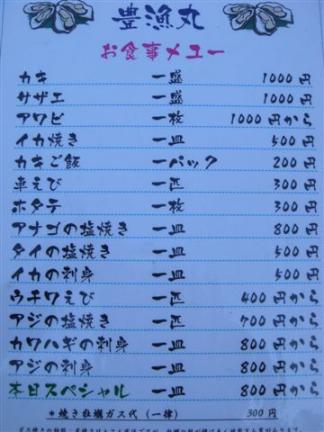 豊漁丸
お食事メュー
カキ 一盛 1000円
サザエ 一盛 1000円
アワビ 一枚 1000円から
イカ焼き 一皿 500円
カキご飯 一パック 200円
車えび 一匹 300円
ホタテ 一枚 300円
アナゴの塩焼き 一皿 800円
タイの塩焼き 一皿 500円
イカの刺身 一皿 500円
ウチワえび 一匹 400円から
アジの塩焼き 一匹 700円から
カワハギの刺身 一皿 800円から
アジの刺身 一皿 800円から
本日スペシャル 一皿 800円から
*焼き台機ガス代(一律) 300円